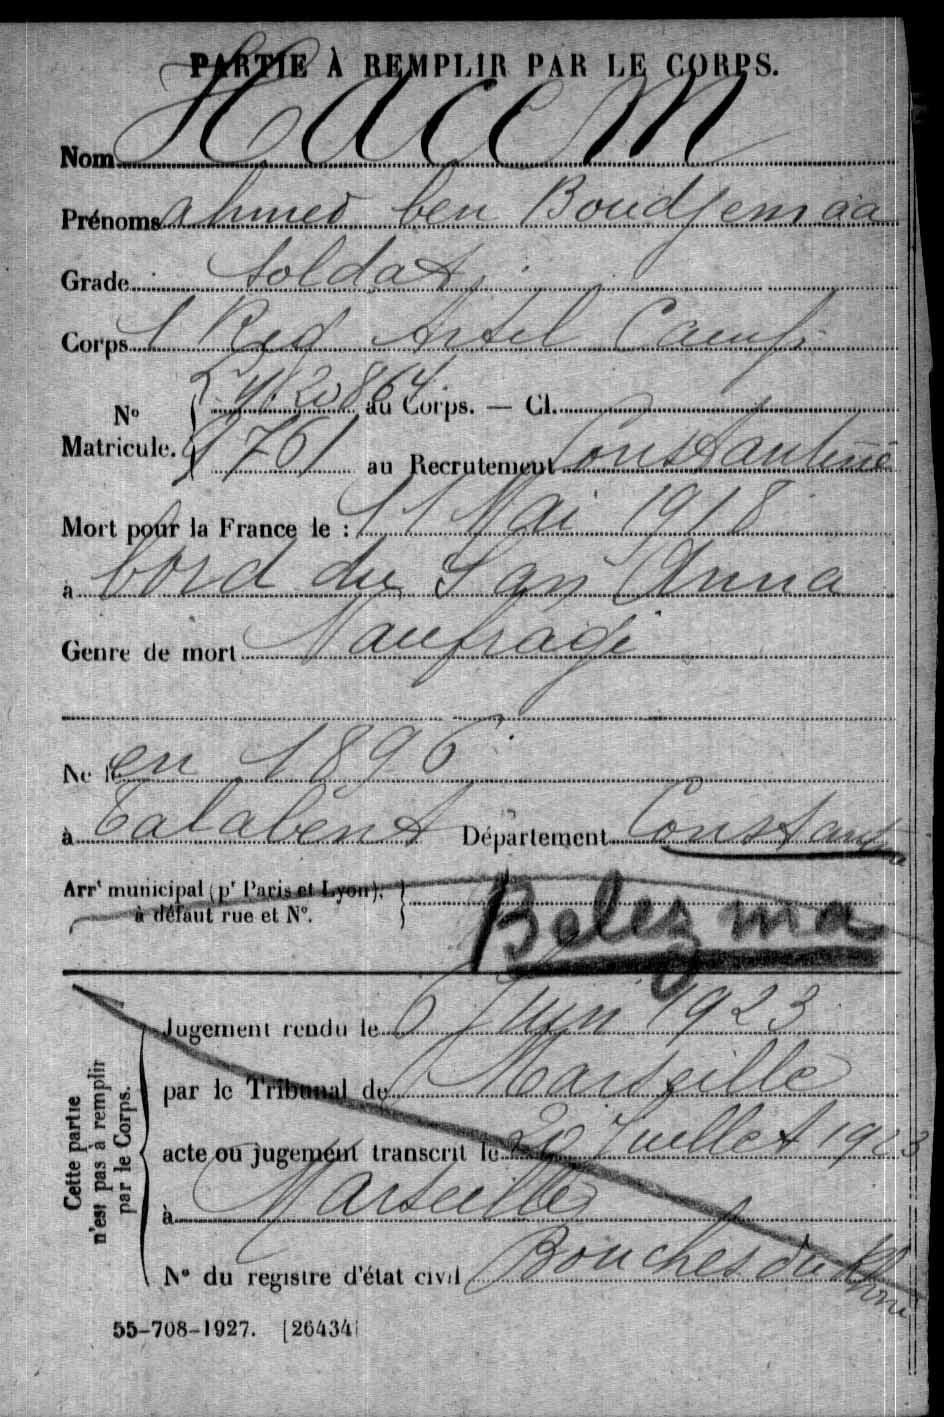 PARTIE À REMPLIR PAR LE CORPS.
Nom Hacem
Prénoms Ahmed ben Boudjemaa
Grade Soldat
Corps 1 Reg Artel Camp
20864 au Corps. — Cl.
N°
Matricule. 1761 au Recrutement Constantine
Mort pour la France le : 11 Mai 1918
à bord du San Anna
Genre de mort Naufrage
Né le en 1896
à Talabent Département Constantine
Arrt municipal (pr Paris et Lyon),
à défaut rue et N°.
Belezma
Jugement rendu le 6 Juin 1923
par le Tribunal de Marseille
acte ou jugement transcrit le 20 Juillet 1923
à Marseille
N° du registre d'état civil Bouches du Rhone
Cette partie
n'est pas à remplir
par le Corps.
55-708-1927. [26434]